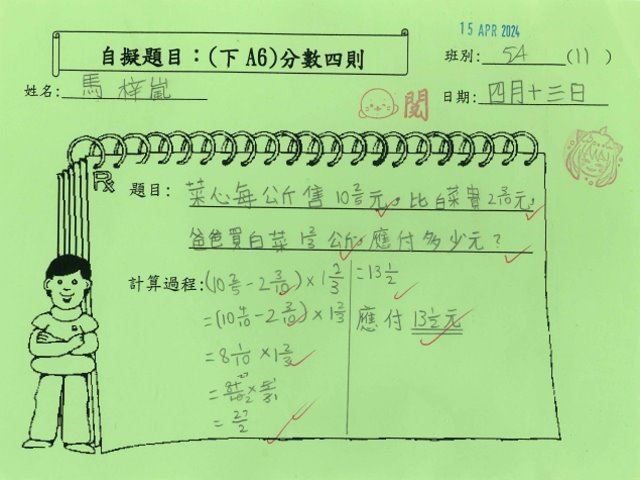 15 APR 2024
自擬題目：(下 A6)分數四則
班別: 5A (11)
姓名: 馬梓嵐
閱
日期: 四月十三日
題目: 菜心每公斤售 10 2/5 元，比白菜貴 2 3/10 元，
爸爸買白菜 1 2/3 公斤應付多少元？
計算過程: (10 2/5 - 2 3/10) × 1 2/3
= (10 4/10 - 2 3/10) × 1 2/3
= 8 1/10 × 1 2/3
= 81/10 × 5/3
= 27/2
= 13 1/2
應付 13 1/2 元